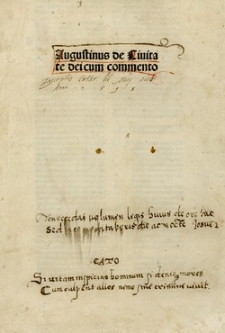 Augustinus de Ciuita
te dei cum commento
Non recedat volumen legis huius ab ore tuo
sed meditaberis die ac nocte Josue 1
CATO
Si vitam inspicias hominum si denique mores
Cum culpent alios nemo sine crimine vivit.